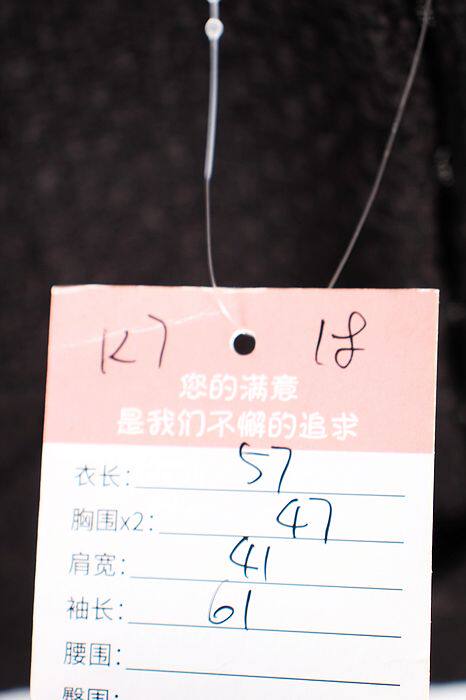 K7 18
您的满意
是我们不懈的追求
衣长: 57
胸围x2: 47
肩宽: 41
袖长: 61
腰围:
臀围: